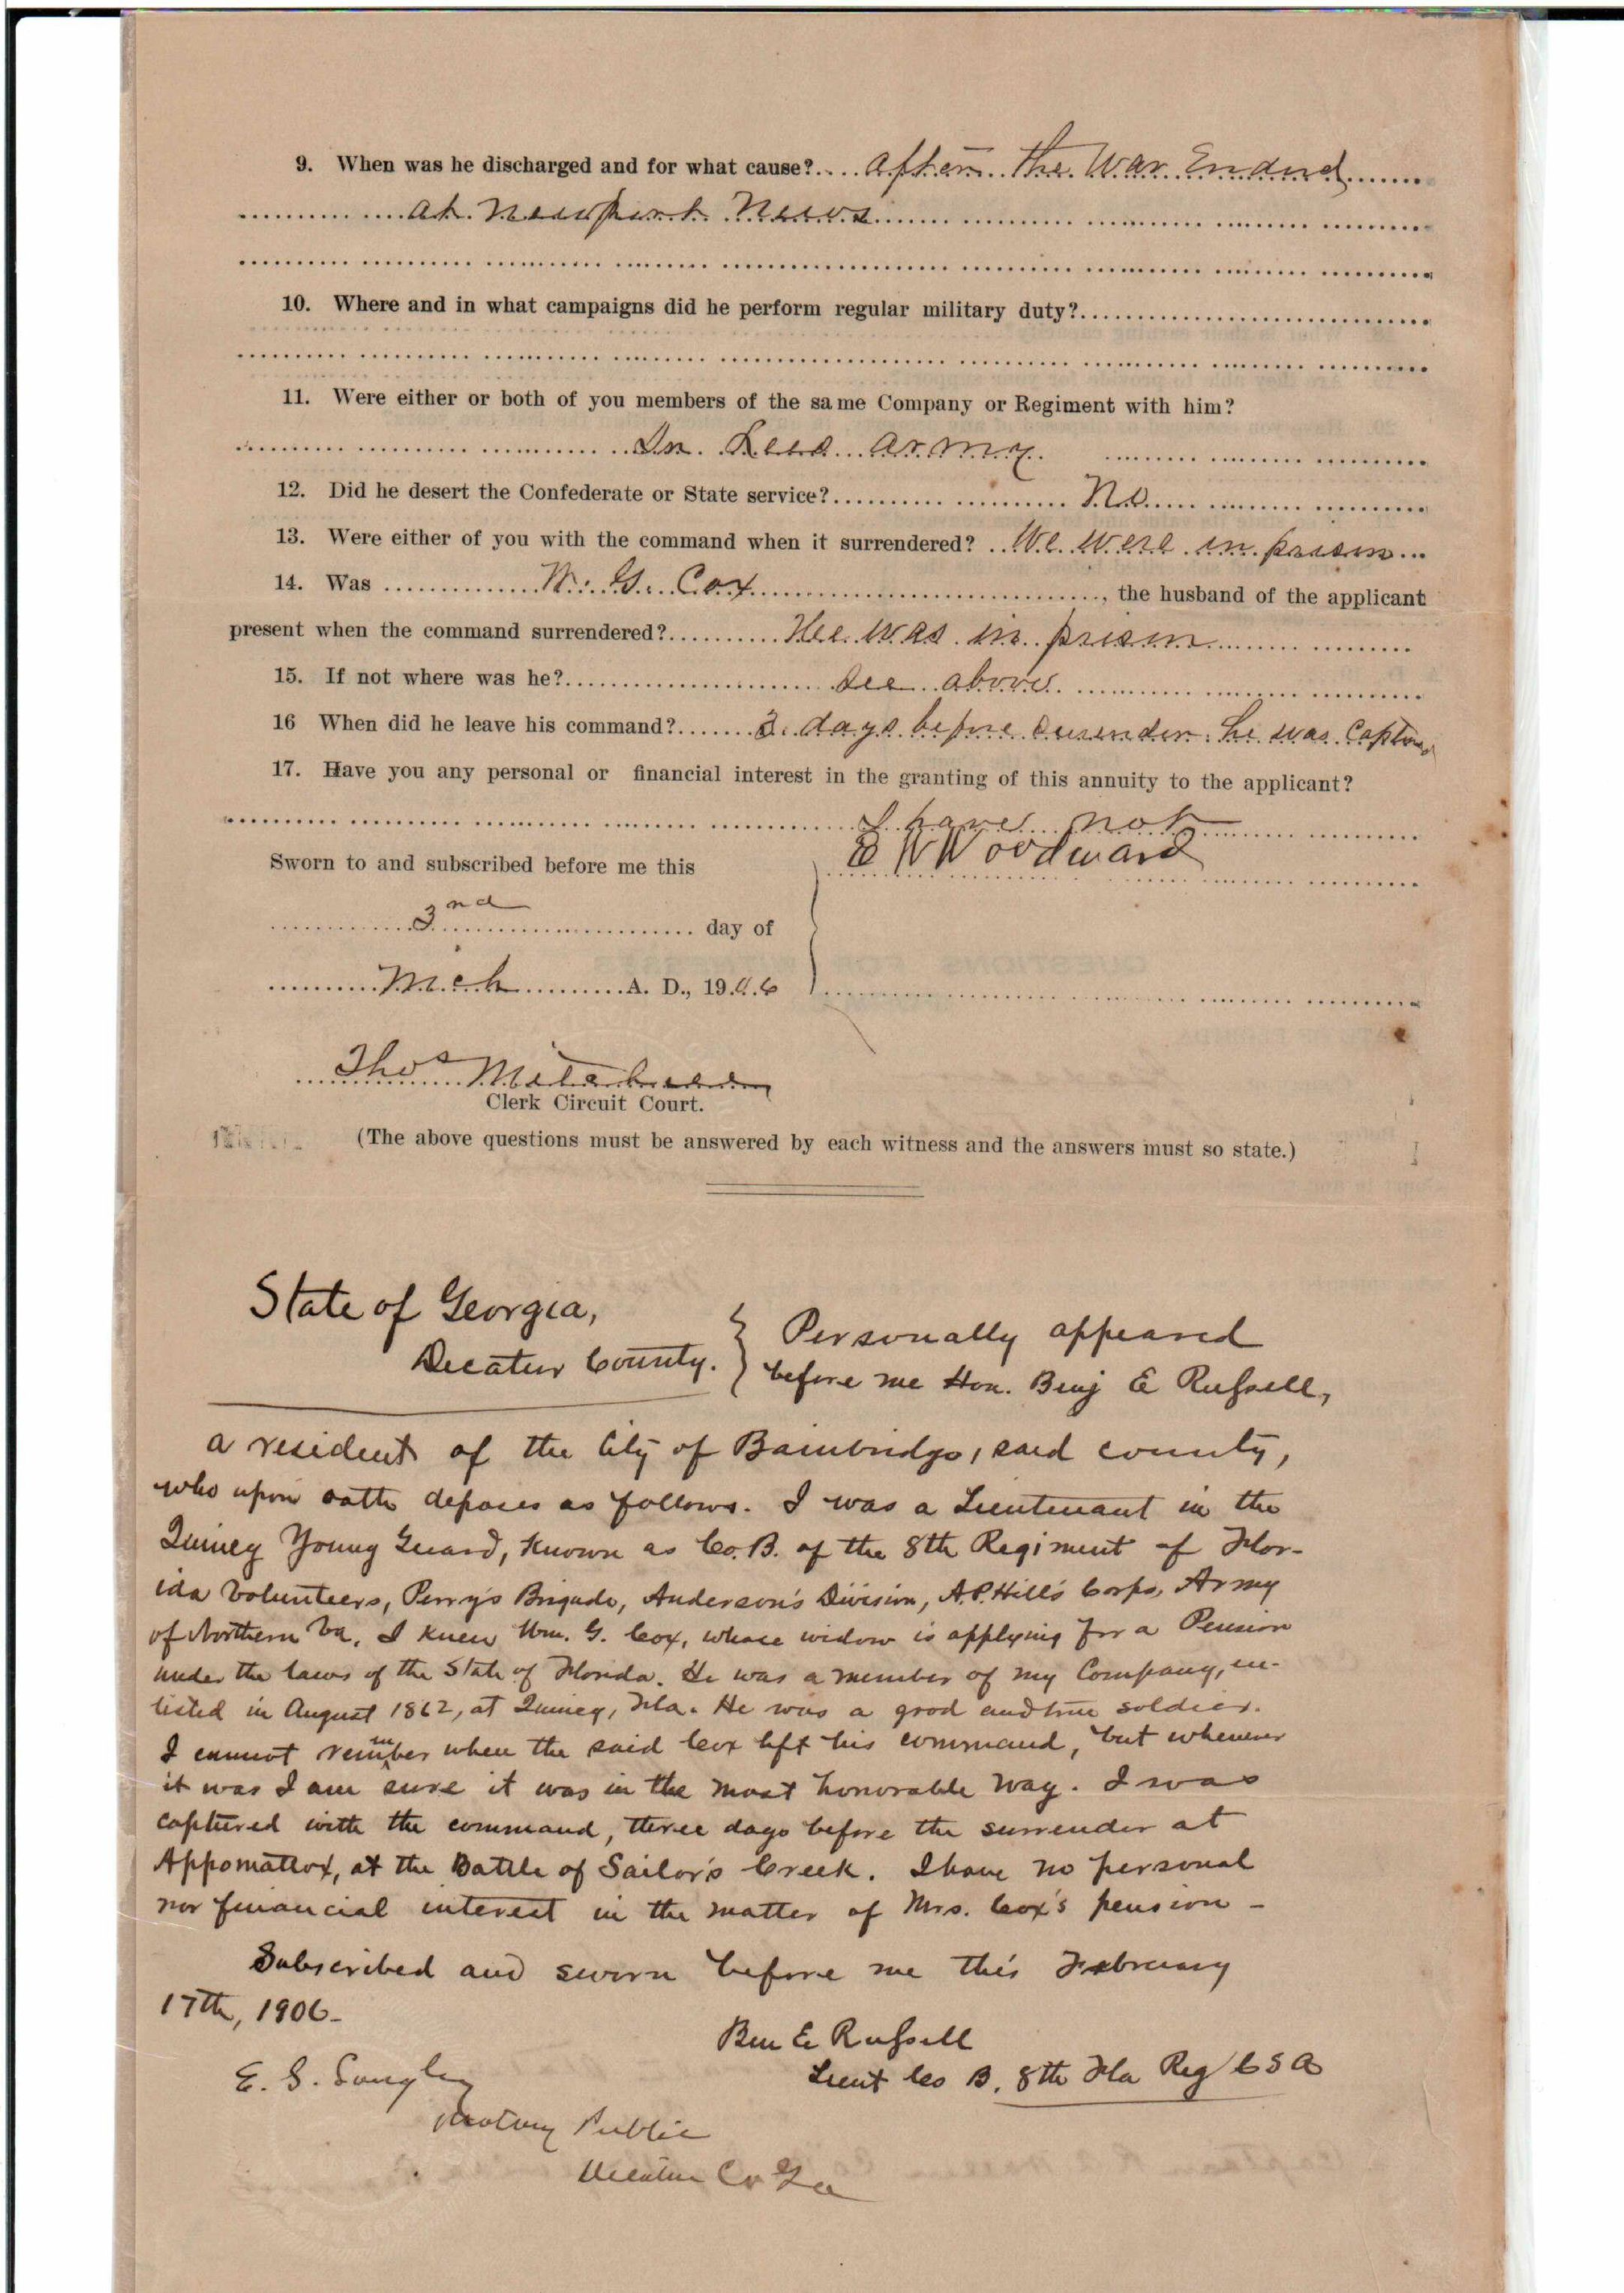 9. When was he discharged and for what cause?.... after the War Ended
at Newport News
10. Where and in what campaigns did he perform regular military duty?
11. Were either or both of you members of the same Company or Regiment with him?
In Lees army
12. Did he desert the Confederate or State service? No
13. Were either of you with the command when it surrendered? We were in prison
14. Was W. G. Cox, the husband of the applicant
present when the command surrendered? Hee was in prison
15. If not where was he? See above
16 When did he leave his command? 3 days before surender he was Captured
17. Have you any personal or financial interest in the granting of this annuity to the applicant?
I have not
Sworn to and subscribed before me this
E W Woodward
3nd day of
Mch A. D., 1906
Thos
Clerk Circuit Court.
(The above questions must be answered by each witness and the answers must so state.)
State of Georgia, } Personally appeared
Decatur County. } before me Hon. Benj E Russell,
a resident of the City of Bainbridge, said county,
who upon oath deposes as follows. I was a Lieutenant in the
Quincy Young Guard, known as Co. B. of the 8th Regiment of Flor-
ida Volunteers, Perry's Brigade, Anderson's Division, A.P. Hill's Corps, Army
of Northern Va. I knew Wm. G. Cox, whose widow is applying for a Pension
under the laws of the State of Florida. He was a member of my Company, en-
listed in August 1862, at Quincy, Fla. He was a good and true soldier.
I cannot remember when the said Cox left his command, but whenever
it was I am sure it was in the most honorable way. I was
captured with the command, three days before the surrender at
Appomattox, at the Battle of Sailor's Creek. I have no personal
nor financial interest in the matter of Mrs. Cox's pension -
Subscribed and sworn before me this February
17th, 1906-
Ben E Russell
Lieut Co B. 8th Fla Reg CSA
E. S. Longley
Notary Public
Decatur Co Ga